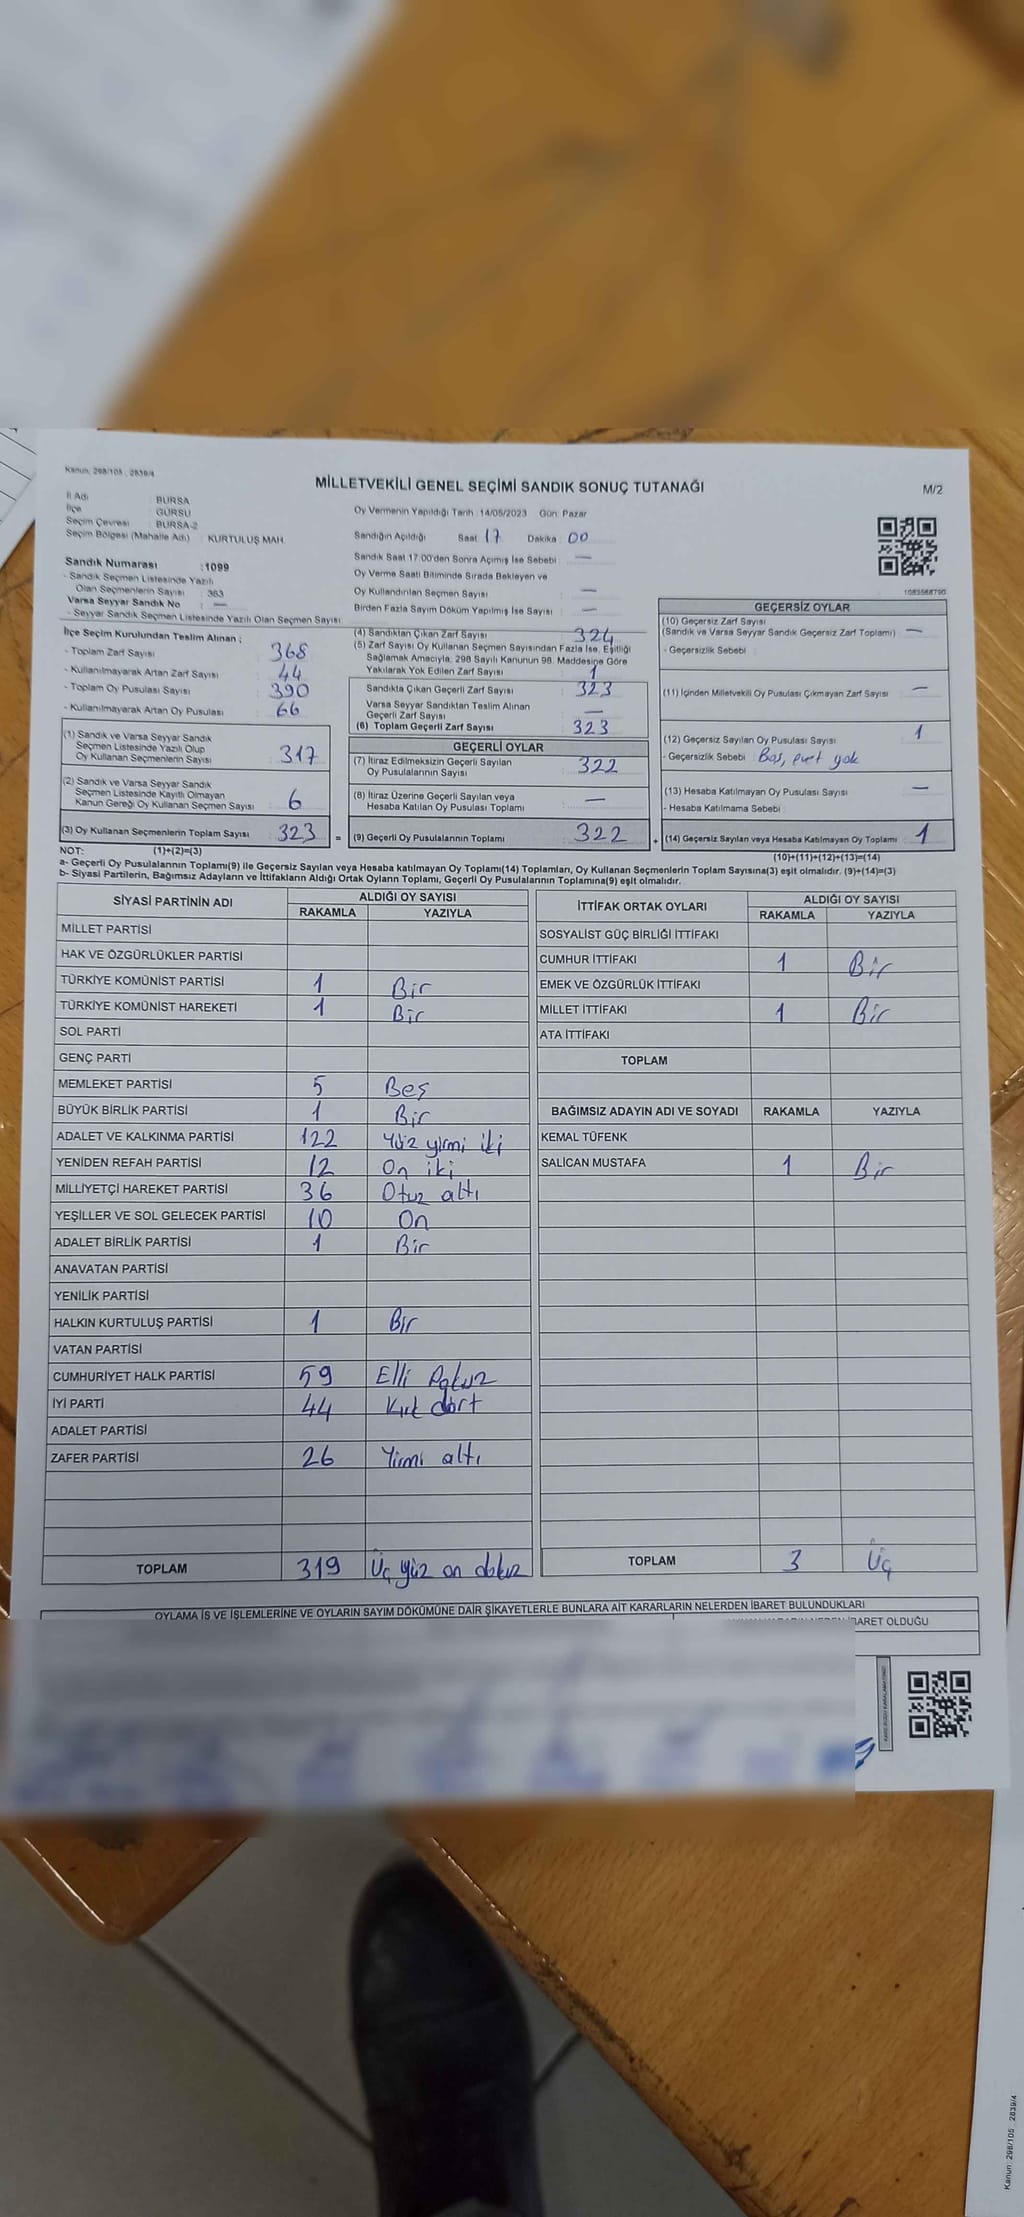 Kanun: 298/105 , 2839/4
MİLLETVEKİLİ GENEL SEÇİMİ SANDIK SONUÇ TUTANAĞI
M/2
İl Adı : BURSA
İlçe : GÜRSU
Seçim Çevresi : BURSA-2
Seçim Bölgesi (Mahalle Adı) : KURTULUŞ MAH.
Oy Vermenin Yapıldığı Tarih :14/05/2023 Gün: Pazar
Sandığın Açıldığı Saat 17 Dakika 00
Sandık Saat 17:00'den Sonra Açımış İse Sebebi : —
Oy Verme Saati Bitiminde Sırada Bekleyen ve
Oy Kullandırılan Seçmen Sayısı : —
Birden Fazla Sayım Döküm Yapılmış İse Sayısı : —
Sandık Numarası :1099
- Sandık Seçmen Listesinde Yazılı
Olan Seçmenlerin Sayısı : 363
Varsa Seyyar Sandık No : —
- Seyyar Sandık Seçmen Listesinde Yazılı Olan Seçmen Sayısı:
1083568790
İlçe Seçim Kurulundan Teslim Alınan ;
- Toplam Zarf Sayısı : 368
- Kullanılmayarak Artan Zarf Sayısı : 44
- Toplam Oy Pusulası Sayısı : 390
- Kullanılmayarak Artan Oy Pusulası : 66
(1) Sandık ve Varsa Seyyar Sandık
Seçmen Listesinde Yazılı Olup
Oy Kullanan Seçmenlerin Sayısı : 317
(2) Sandık ve Varsa Seyyar Sandık
Seçmen Listesinde Kayıtlı Olmayan
Kanun Gereği Oy Kullanan Seçmen Sayısı : 6
(3) Oy Kullanan Seçmenlerin Toplam Sayısı : 323 =
(4) Sandıktan Çıkan Zarf Sayısı : 324
(5) Zarf Sayısı Oy Kullanan Seçmen Sayısından Fazla İse, Eşitliği
Sağlamak Amacıyla, 298 Sayılı Kanunun 98. Maddesine Göre
Yakılarak Yok Edilen Zarf Sayısı : 1
Sandıkta Çıkan Geçerli Zarf Sayısı : 323
Varsa Seyyar Sandıktan Teslim Alınan
Geçerli Zarf Sayısı : —
(6) Toplam Geçerli Zarf Sayısı : 323
GEÇERLİ OYLAR
(7) İtiraz Edilmeksizin Geçerli Sayılan
Oy Pusulalarının Sayısı : 322
(8) İtiraz Üzerine Geçerli Sayılan veya
Hesaba Katılan Oy Pusulası Toplamı : —
(9) Geçerli Oy Pusulalarının Toplamı : 322 +
GEÇERSİZ OYLAR
(10) Geçersiz Zarf Sayısı :
(Sandık ve Varsa Seyyar Sandık Geçersiz Zarf Toplamı) —
- Geçersizlik Sebebi :
(11) İçinden Milletvekili Oy Pusulası Çıkmayan Zarf Sayısı : —
(12) Geçersiz Sayılan Oy Pusulası Sayısı : 1
- Geçersizlik Sebebi : Boş, evet yok
(13) Hesaba Katılmayan Oy Pusulası Sayısı : —
- Hesaba Katılmama Sebebi :
(14) Geçersiz Sayılan veya Hesaba Katılmayan Oy Toplamı : 1
NOT: (1)+(2)=(3)
(10)+(11)+(12)+(13)=(14)
a- Geçerli Oy Pusulalarının Toplamı(9) ile Geçersiz Sayılan veya Hesaba katılmayan Oy Toplamı(14) Toplamları, Oy Kullanan Seçmenlerin Toplam Sayısına(3) eşit olmalıdır. (9)+(14)=(3)
b- Siyasi Partilerin, Bağımsız Adayların ve İttifakların Aldığı Ortak Oyların Toplamı, Geçerli Oy Pusulalarının Toplamına(9) eşit olmalıdır.
SİYASİ PARTİNİN ADI ALDIĞI OY SAYISI
RAKAMLA YAZIYLA
MİLLET PARTİSİ
HAK VE ÖZGÜRLÜKLER PARTİSİ
TÜRKİYE KOMÜNİST PARTİSİ 1 Bir
TÜRKİYE KOMÜNİST HAREKETİ 1 Bir
SOL PARTİ
GENÇ PARTİ
MEMLEKET PARTİSİ 5 Beş
BÜYÜK BİRLİK PARTİSİ 1 Bir
ADALET VE KALKINMA PARTİSİ 122 Yüz yirmi iki
YENİDEN REFAH PARTİSİ 12 On iki
MİLLİYETÇİ HAREKET PARTİSİ 36 Otuz altı
YEŞİLLER VE SOL GELECEK PARTİSİ 10 On
ADALET BİRLİK PARTİSİ 1 Bir
ANAVATAN PARTİSİ
YENİLİK PARTİSİ
HALKIN KURTULUŞ PARTİSİ 1 Bir
VATAN PARTİSİ
CUMHURİYET HALK PARTİSİ 59 Elli Dokuz
İYİ PARTİ 44 Kırk dört
ADALET PARTİSİ
ZAFER PARTİSİ 26 Yirmi altı
TOPLAM 319 Üç yüz on dokuz
İTTİFAK ORTAK OYLARI ALDIĞI OY SAYISI
RAKAMLA YAZIYLA
SOSYALİST GÜÇ BİRLİĞİ İTTİFAKI
CUMHUR İTTİFAKI 1 Bir
EMEK VE ÖZGÜRLÜK İTTİFAKI
MİLLET İTTİFAKI 1 Bir
ATA İTTİFAKI
TOPLAM
BAĞIMSIZ ADAYIN ADI VE SOYADI RAKAMLA YAZIYLA
KEMAL TÜFENK
SALİCAN MUSTAFA 1 Bir
TOPLAM 3 Üç
OYLAMA İŞ VE İŞLEMLERİNE VE OYLARIN SAYIM DÖKÜMÜNE DAİR ŞİKAYETLERLE BUNLARA AİT KARARLARIN NELERDEN İBARET BULUNDUKLARI
İBARET OLDUĞU
Kanun: 298/105 , 2839/4